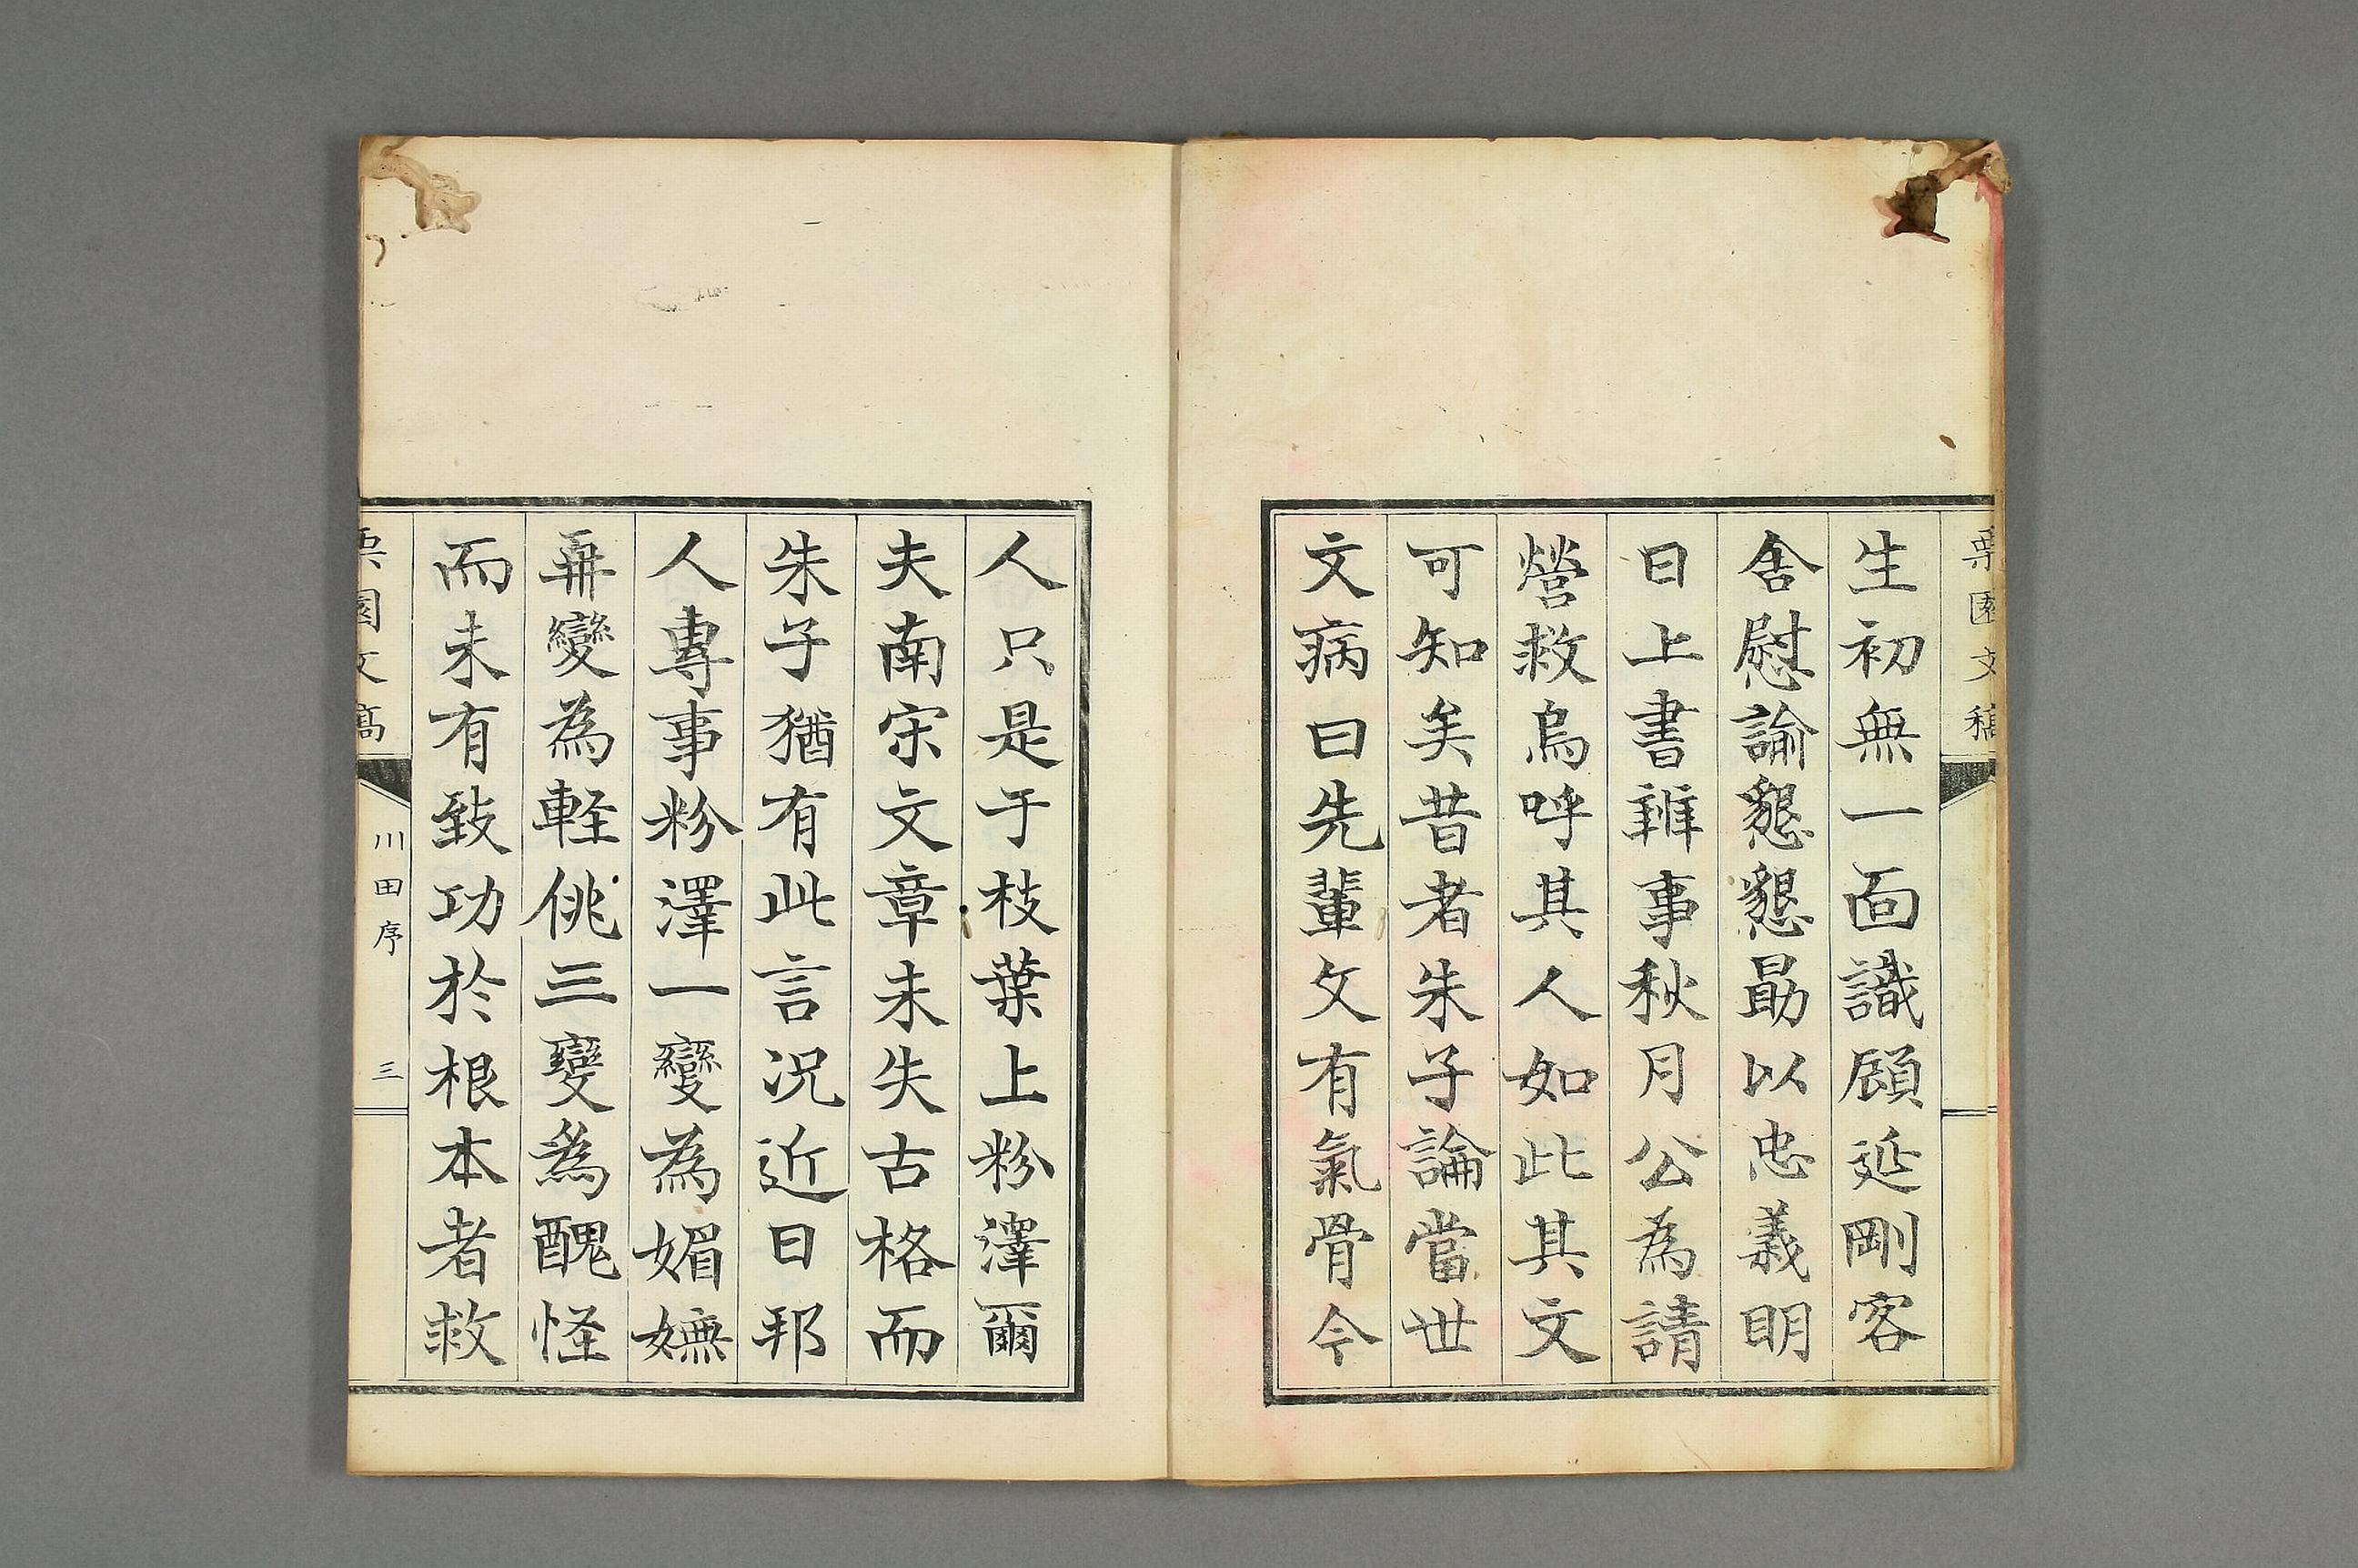 栗園文稿
生初無一面識顧延剛客
舎慰諭懇懇勗以忠義明
日上書辨事秋月公為請
營救烏呼其人如此其文
可知矣昔者朱子論當世
文病曰先輩文有氣骨今
人只是于枝葉上粉澤爾
夫南宋文章未失古格而
朱子猶有此言況近日邦
人專事粉澤一變為媚嫵
再變為軽佻三變爲醜怪
而未有致功於根本者救
栗園文稿
川田序
三